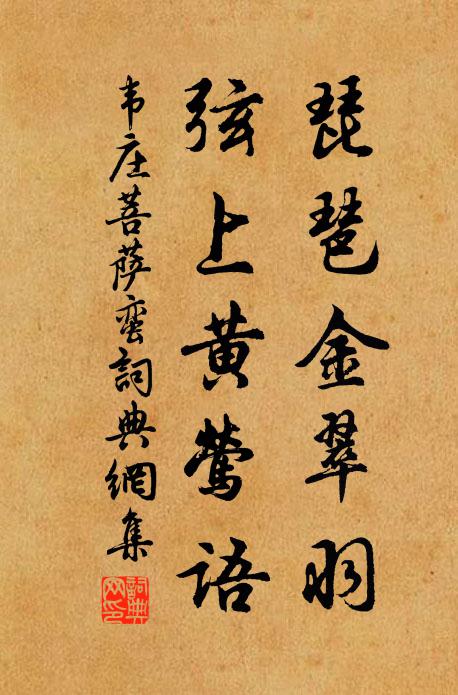 琵琶金翠羽
弦上黄莺语
韦庄菩萨蛮詞典網集
詞典网印